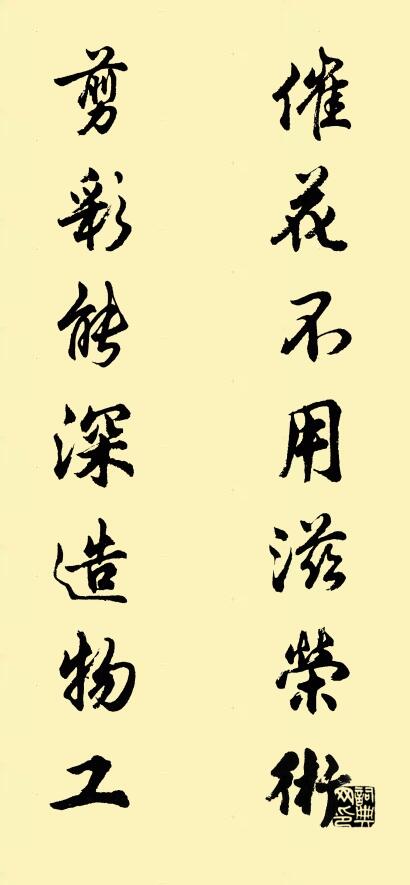 催花不用滋榮術
剪彩能深造物工
詞典網印